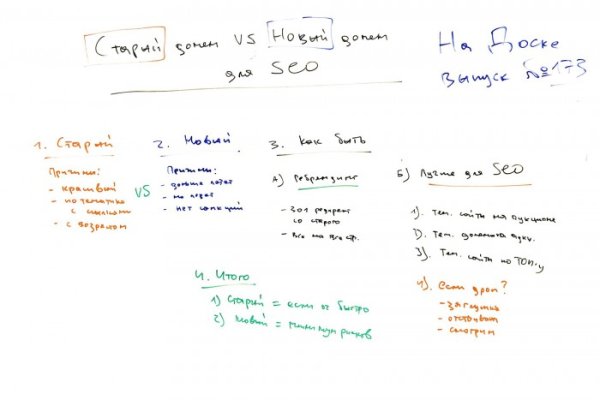 Старый домен VS Новый домен
для SEO
На Доске
выпуск №173
1. Старый
Причины:
- красивый
- по тематике
с ссылками
- с возрастом
VS
2. Новый
Причины:
- дольше
- не
- нет санкций
3. Как быть
А) Ребрендинг
- 301 редирект
со старого
- все на все стр.
Б) Лучше для SEO
1). Тем. сайты на аукционе
2). Тем. домена аукц.
3). Тем. сайты по ТОПу
4). Если дроп?
- заглушка
- отстойник
- смотрим
4. Итого
1) Старый = если ок быстро
2) Новый = минимум рисков